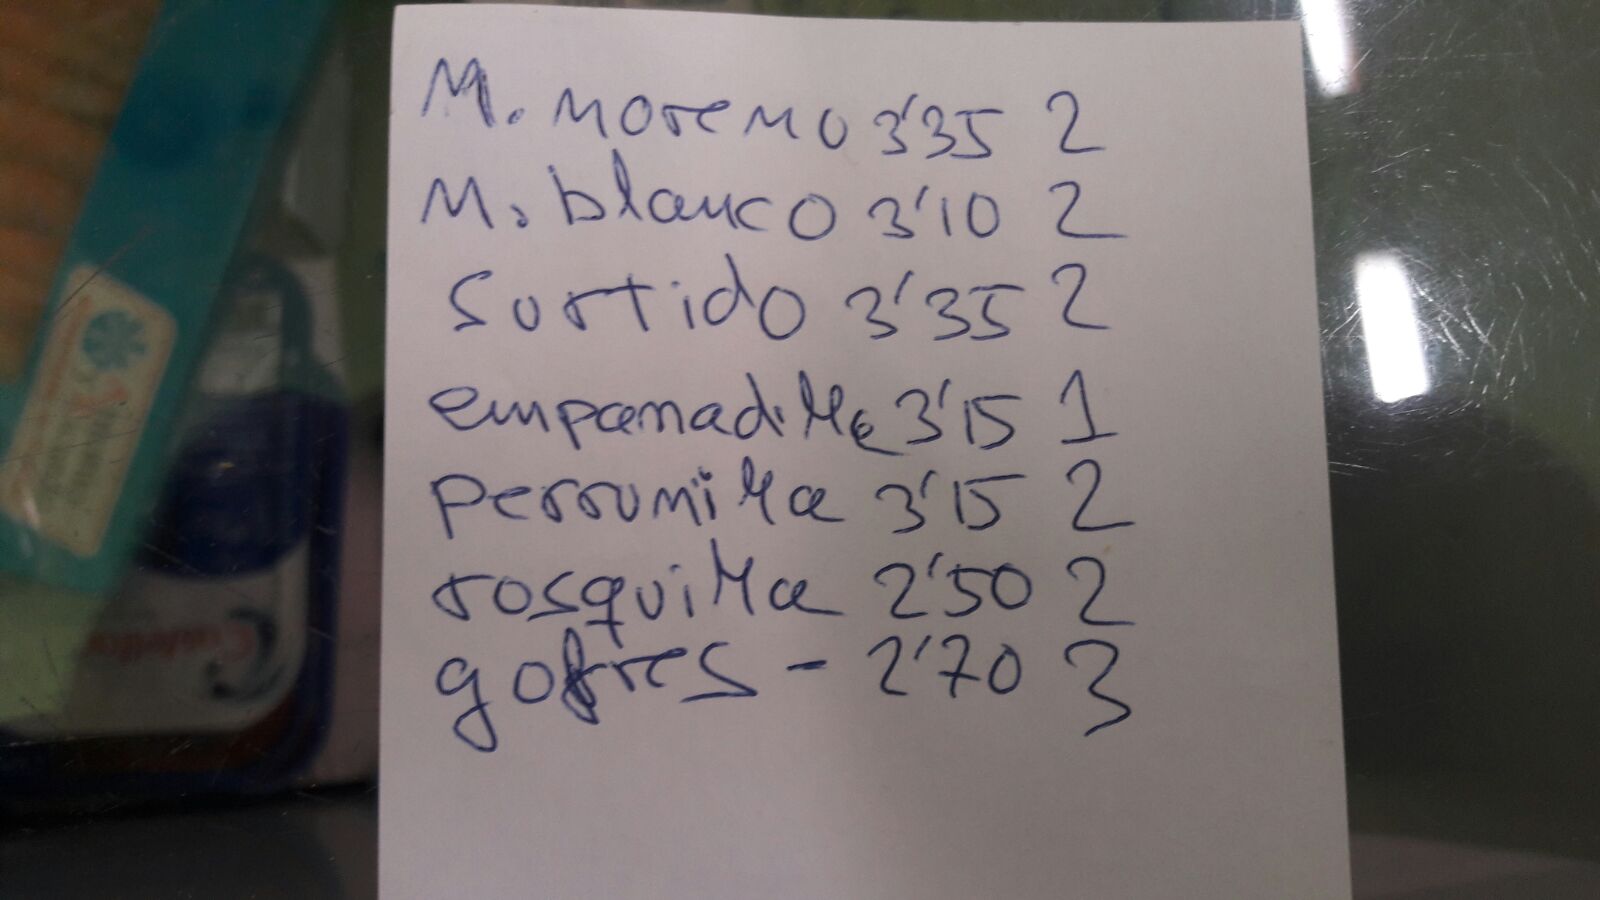 M. moreno 3'35 2
M. blanco 3'10 2
Surtido 3'35 2
empanadilla 3'15 1
perrunilla 3'15 2
rosquilla 2'50 2
gofres - 2'70 3